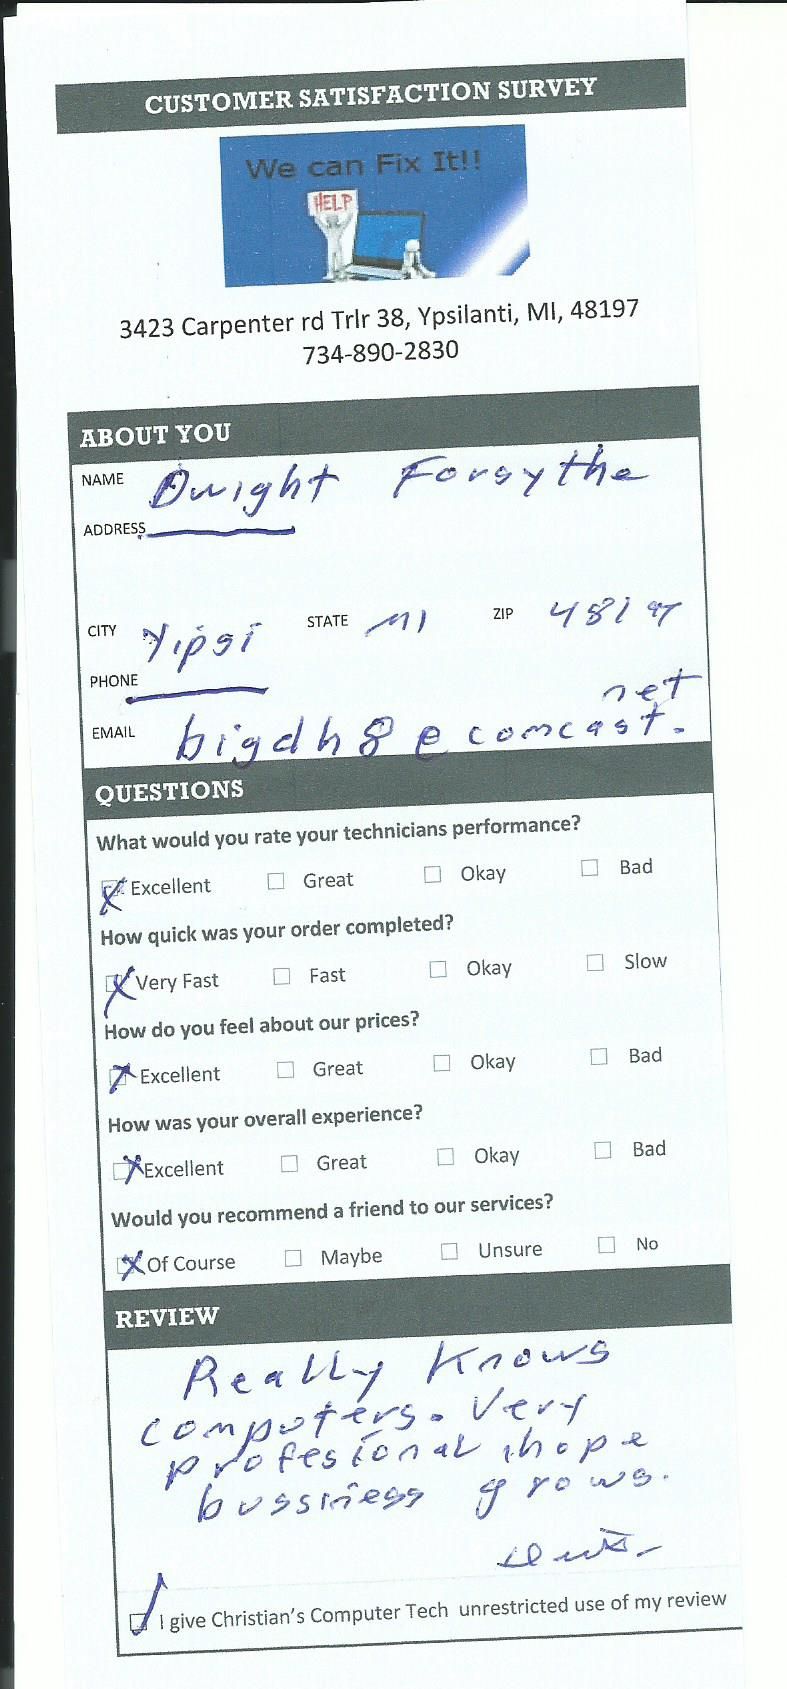 CUSTOMER SATISFACTION SURVEY
We can Fix It!!
HELP
3423 Carpenter rd Trlr 38, Ypsilanti, MI, 48197
734-890-2830
ABOUT YOU
NAME Dwight Forsythe
ADDRESS
CITY Yipsi STATE MI ZIP 48197
PHONE
net
EMAIL bigdh8@comcast.
QUESTIONS
What would you rate your technicians performance?
Excellent Great Okay Bad
How quick was your order completed?
Very Fast Fast Okay Slow
How do you feel about our prices?
Excellent Great Okay Bad
How was your overall experience?
Excellent Great Okay Bad
Would you recommend a friend to our services?
Of Course Maybe Unsure No
REVIEW
Really Knows
computers. Very
profesional ihope
bussiness grows.
I give Christian's Computer Tech unrestricted use of my review